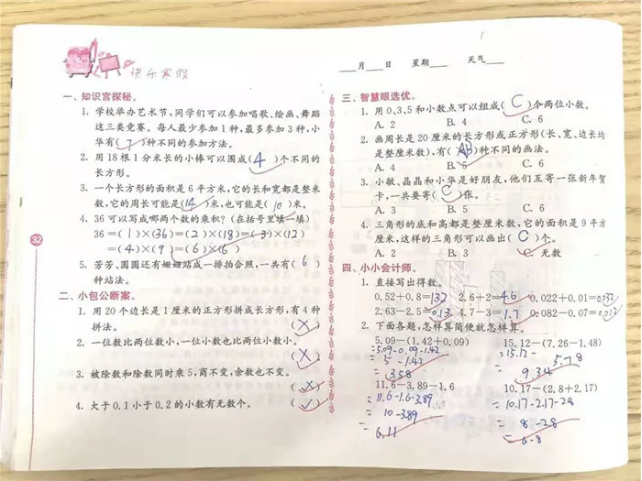 快乐寒假
___月___日 星期___ 天气___
一、知识宫探秘。
1. 学校举办艺术节,同学们可以参加唱歌、绘画、舞蹈
这三类竞赛。每人最少参加1种,最多参加3种,小
华有(7)种不同的参加方法。
2. 用18根1分米长的小棒可以围成(4)个不同的
长方形。
3. 一个长方形的面积是6平方米,它的长和宽都是整米
数,它的周长可能是(14)米,也可能是(10)米。
4. 36可以写成哪两个数的乘积?(在括号里填一填)
36=(1)×(36)=(2)×(18)=(3)×(12)
=(4)×(9)=(6)×(6)
5. 芳芳、圆圆还有姗姗站成一排拍合照,一共有(6)
种站法。
二、小包公断案。
1. 用20个边长是1厘米的正方形拼成长方形,有4种
拼法。 (×)
2. 一位数比两位数小,一位小数也比两位小数小。
(×)
3. 被除数和除数同时乘5,商不变,余数也不变。
(×)
4. 大于0.1小于0.2的小数有无数个。 (√)
32
三、智慧眼选优。
1. 用0、3、5和小数点可以组成(C)个两位小数。
A. 2 B. 4 C. 6
2. 画周长是20厘米的长方形或正方形(长、宽、边长均
是整厘米数),有()种不同的画法。
A. 4 B. 5 C. 6
3. 小敏、晶晶和小华是好朋友,他们互寄一张新年贺
卡,一共要寄(C)张。
A. 3 B. 5 C. 6
4. 三角形的底和高都是整厘米数,它的面积是9平方
厘米,这样的三角形可以画出(C)个。
A. 2 B. 3 C. 无数
四、小小会计师。
1. 直接写出得数。
0.52+0.8=1.32 2.6+2=4.6 0.022+0.01=0.032
2.63-2.5=0.13 4.7-3=1.7 0.082-0.07=0.012
2. 下面各题,怎样算简便就怎样算。
5.09-(1.42+0.09) 15.12-(7.26-1.48)
=5.09-0.09-1.42 =15.12-5.78
=5-1.42 =9.34
=3.58
11.6-3.89-1.6 10.17-(2.8+2.17)
=11.6-1.6-3.89 =10.17-2.17-2.8
=10-3.89 =8-2.8
=6.11